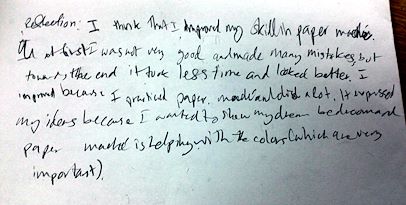 reflection: I think that I improved my skill in paper mache.
at first I was not very good and made many mistakes, but
towards the end it took less time and looked better. I
improved because I practiced paper mache and did a lot. It expressed
my ideas because I wanted to show my dream bedroom and
paper mache is helping with the colors (which are very
important)